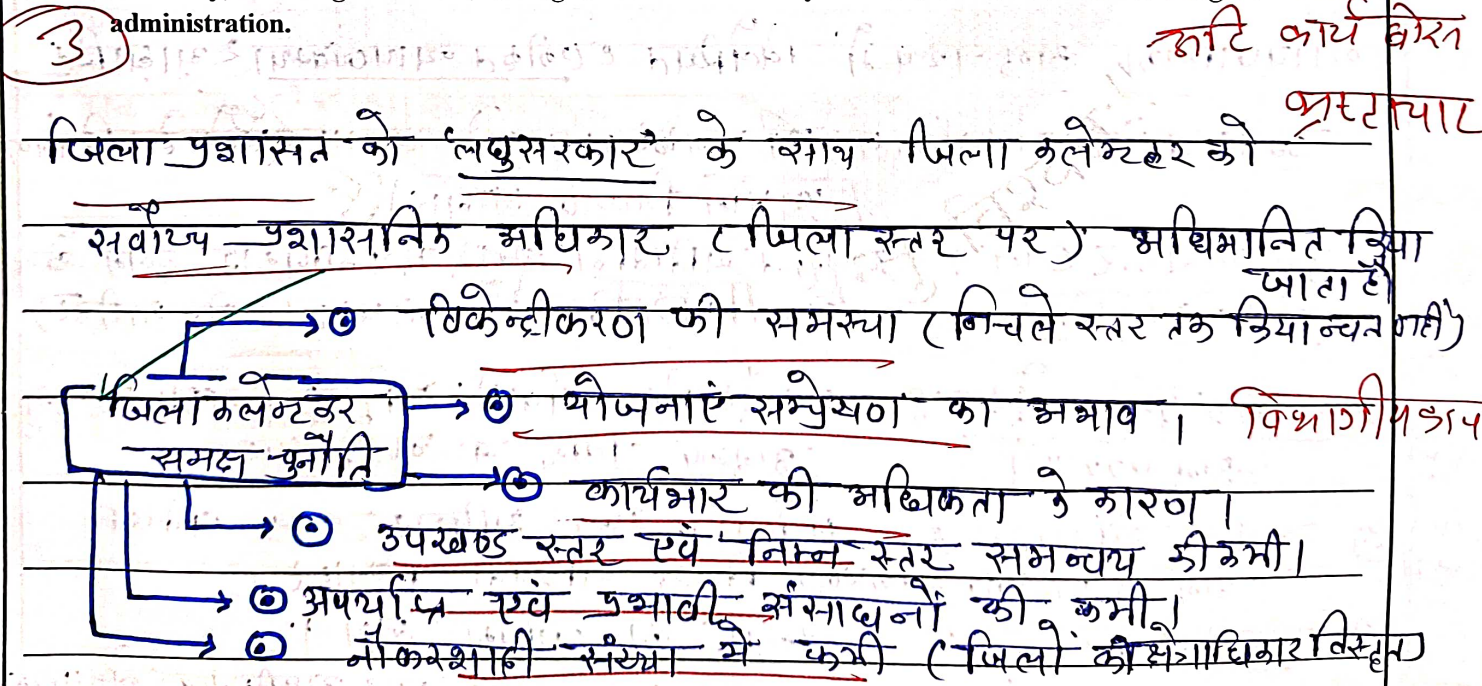 administration.
3
कार्य बोझ
भ्रष्टाचार
जिला प्रशासन को 'लघुसरकार' के साथ जिला कलेक्टर को
सर्वोच्य प्रशासनिक अधिकार (जिला स्तर पर) अभिमानित किया
जाता है
विकेन्द्रीकरण की समस्या (निचले स्तर तक क्रियान्वत नहीं)
जिला कलेक्टर
समक्ष चुनौति
योजनाएं सम्प्रेषण का अभाव ।
विभागीय
कार्यभार की अधिकता के कारण ।
उपखण्ड स्तर एवं निम्न स्तर समन्वय की कमी।
अपर्याप्त एवं प्रभावी संसाधनों की कमी।
नौकरशाही संख्या मे कमी (जिलो की क्षेत्राधिकार विस्तृत)